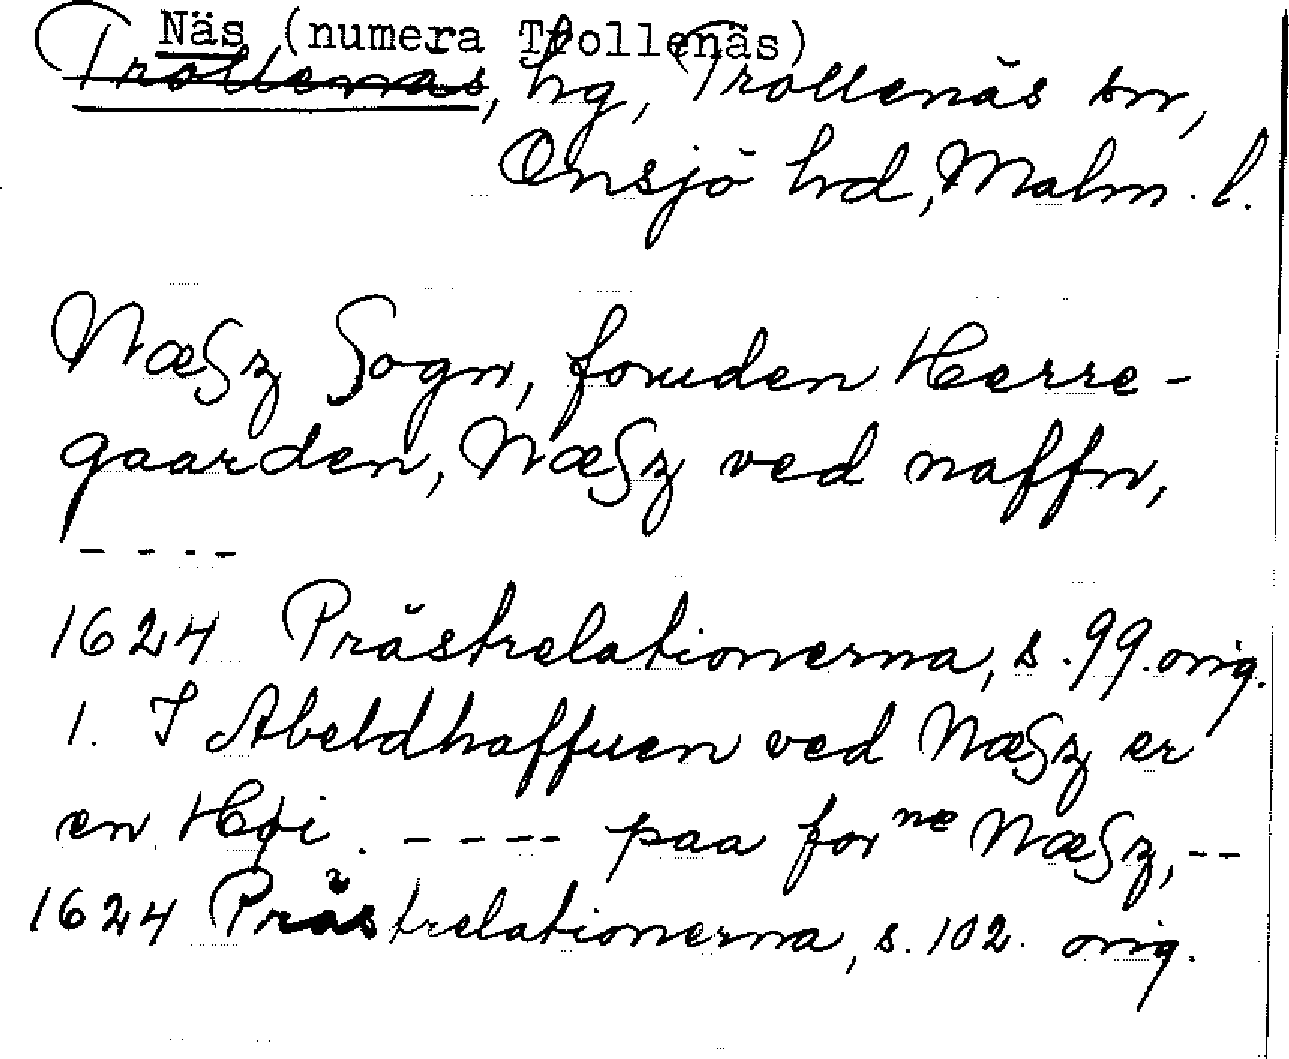 Näs (numera Trollenäs)
Trollenäs, hg, Trollenäs sn,
Onsjö hd, Malm. l.
Næsz Sogn, foruden Herre-
gaarden, Næsz ved naffn,
- - - -
1624 Prästrelationerna, s. 99. orig.
1. I Abeldhaffuen ved Næsz er
en Høi. - - - - paa for ne Næsz, - -
1624 Prästrelationerna, s. 102. orig.